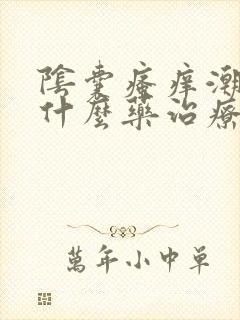 陰囊瘙痒潮
什麽藥治療
萬年小中单